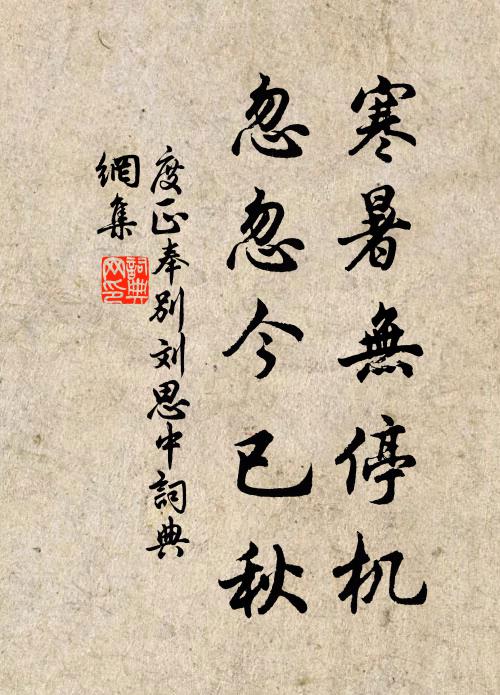 寒暑無停机
忽忽今已秋
度正奉別刘思中詞典
網集
詞典
网印